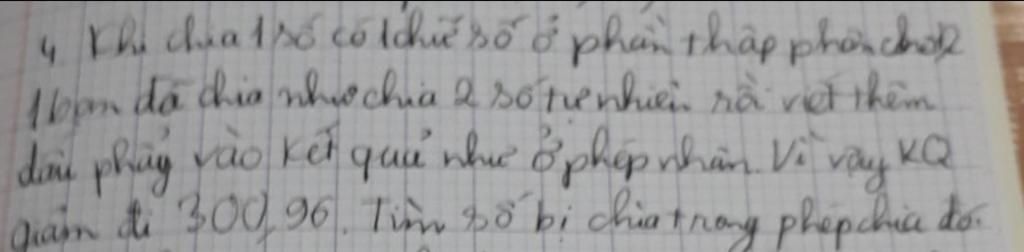 4 Khi chia 1 số có 1 chữ số ở phần thập phân cho 2
1 bạn đã chia như chia 2 số tự nhiên rồi viết thêm
dấu phẩy vào kết quả như ở phép nhân. Vì vậy KQ
giảm đi 300,96. Tìm số bị chia trong phép chia đó.